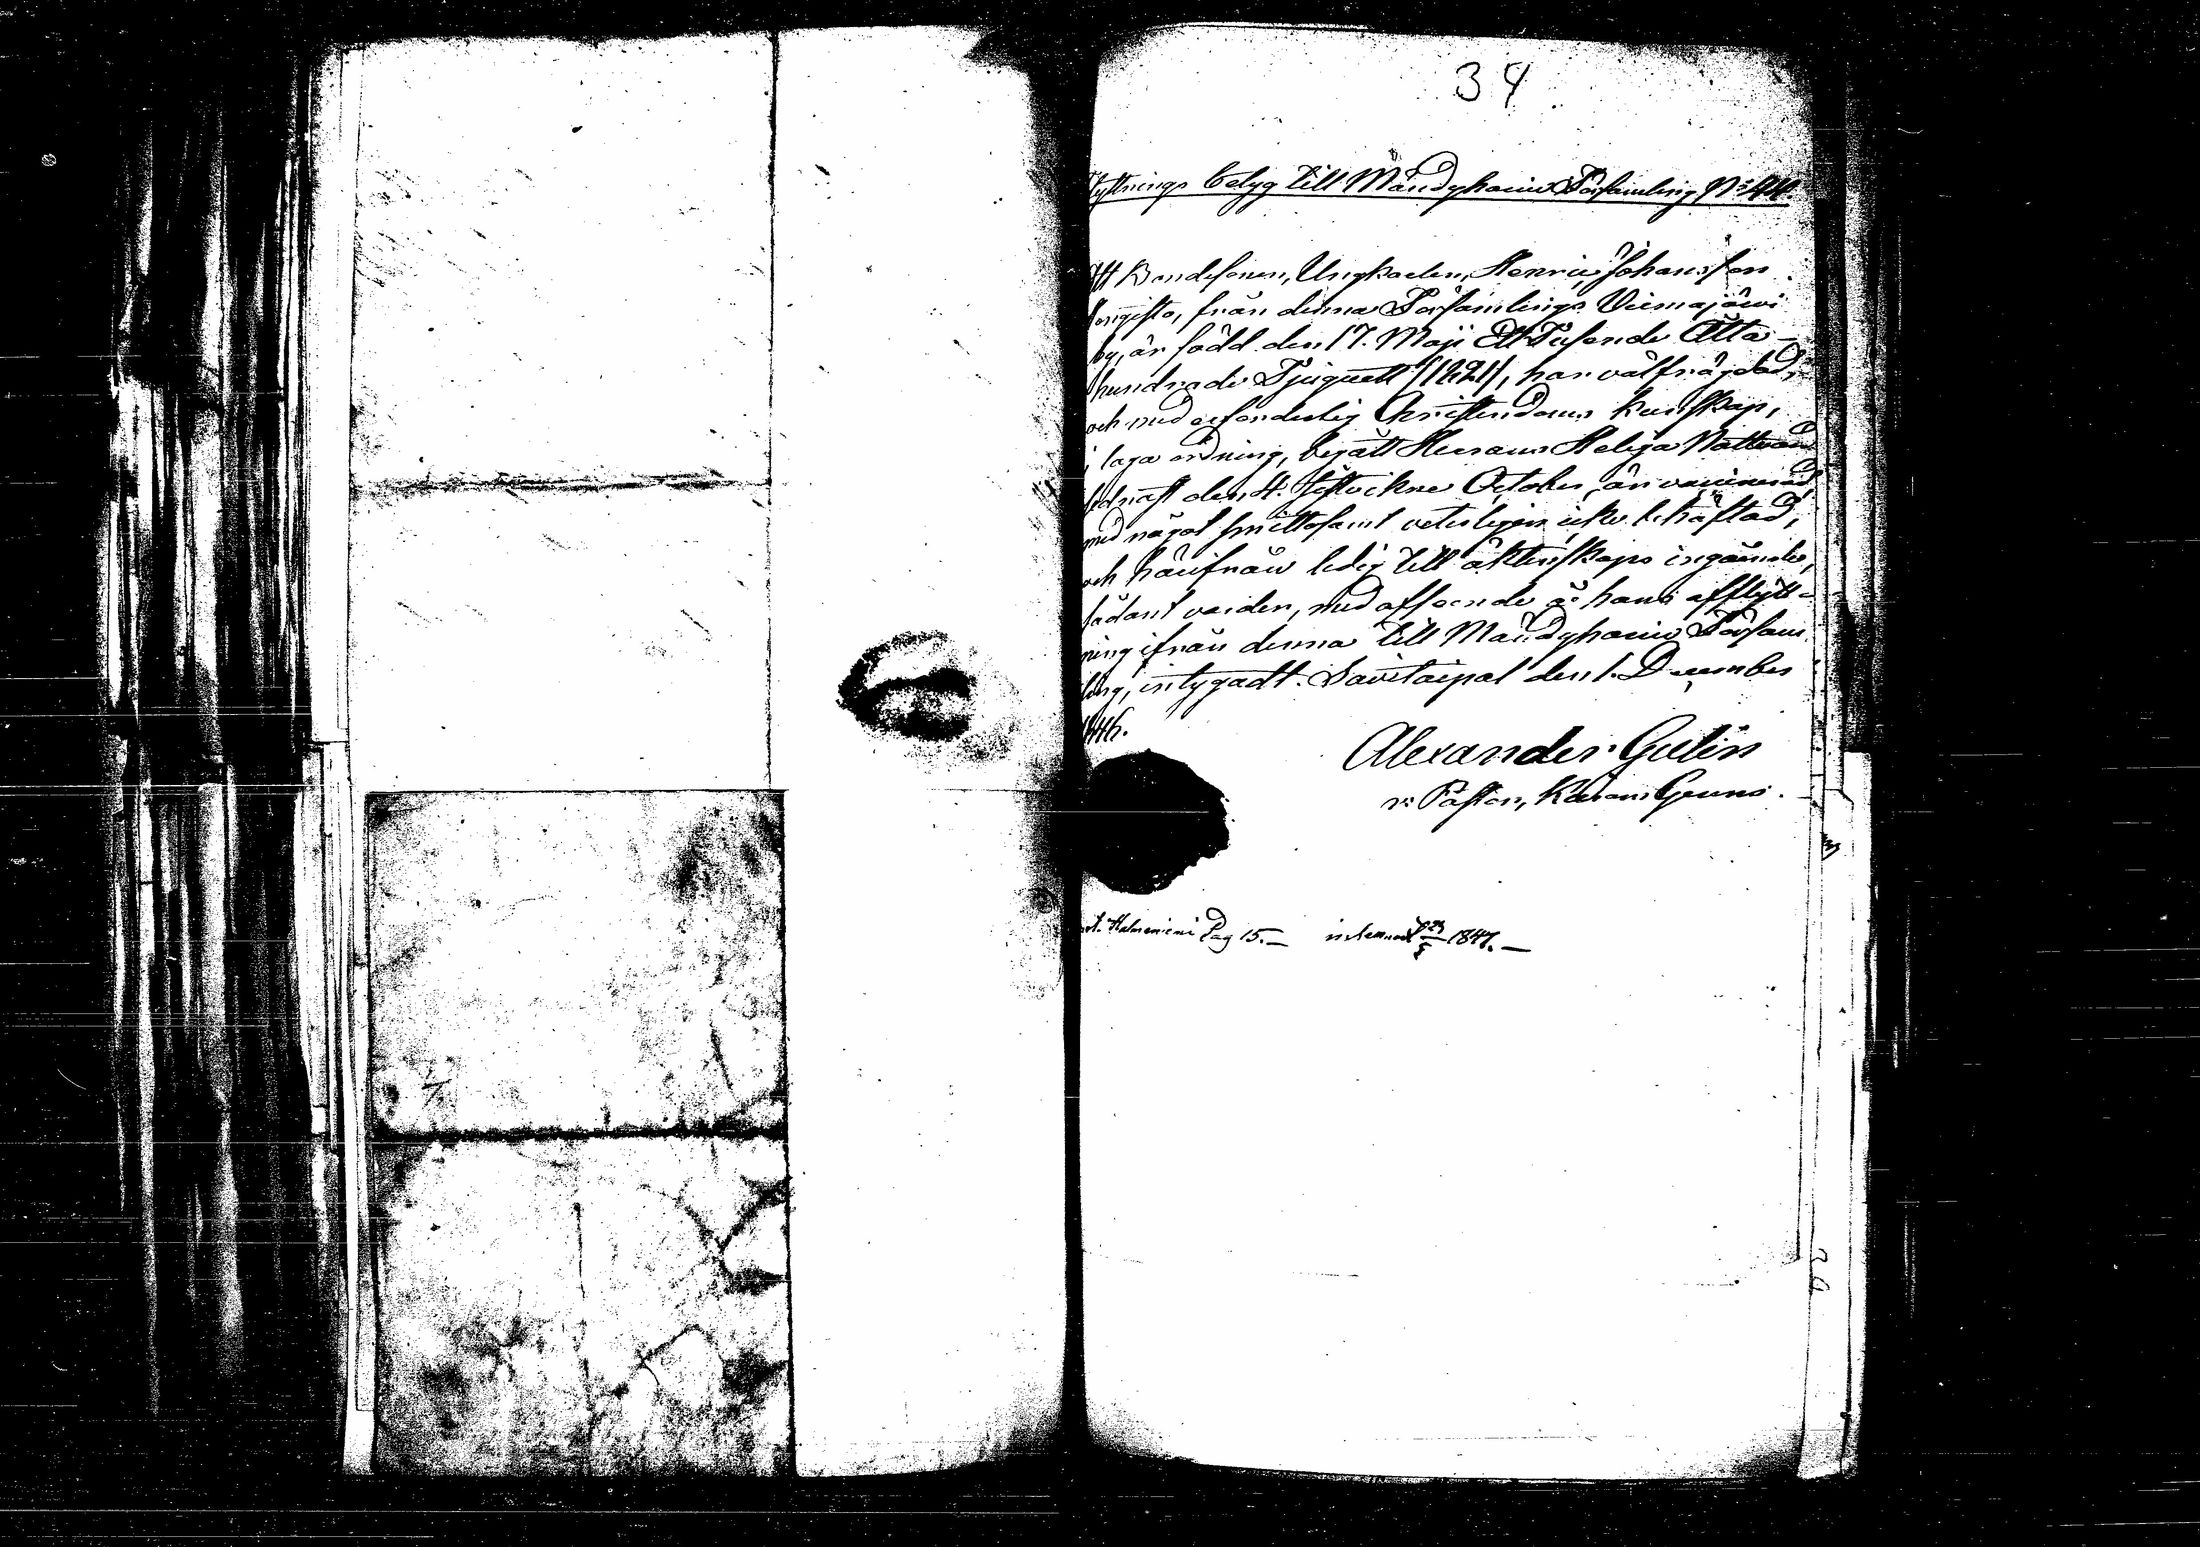 34
Flyttnings betyg till Mändyharju Församling, No 44.
Att Bondesonen, Ungkarlen, Henric Johansson
från denna Församlings Viemajärwi
by, är född den 17. Maji Ett Tusende Åtta-
hundrade Tjuguett /1821/, har välfrägdad,
och med erforderlig Christendoms kunskap,
i laga ordning, begått Herrans Heliga Nattvard
sednast den 4. sistvikne October, är vaccinerad,
med något smittosamt veterligen icke behäftad,
och härifrån ledig till äktenskaps ingående,
sådant varder, med afseende å hans afflytt-
ning ifrån denna till Mändyharju Försam
ling, intygadt. Savitaipal den 1. December
1846.
Alexander Gulin
v. Pastor, Adjunct
Pag 15.— inlemnad 23/5 1847.—